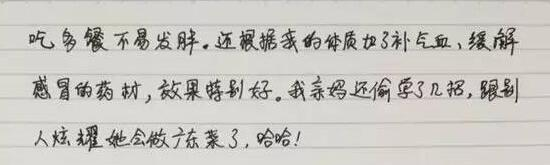 吃多餐不易发胖。还根据我的体质加了补气血、缓解
感冒的药材，效果特别好。我亲妈还偷学了几招，跟别
人炫耀她会做广东菜了，哈哈！